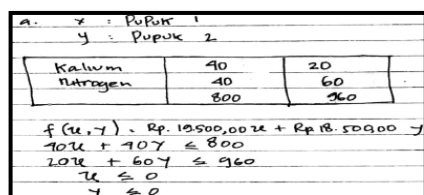 a. x : Pupuk 1
y : Pupuk 2
Kalium 40 20
Nitrogen 40 60
800 960
f(x,y) = Rp. 19.500,00 x + Rp 18.500,00 y
40x + 40y ≤ 800
20x + 60y ≤ 960
x ≤ 0
y ≤ 0